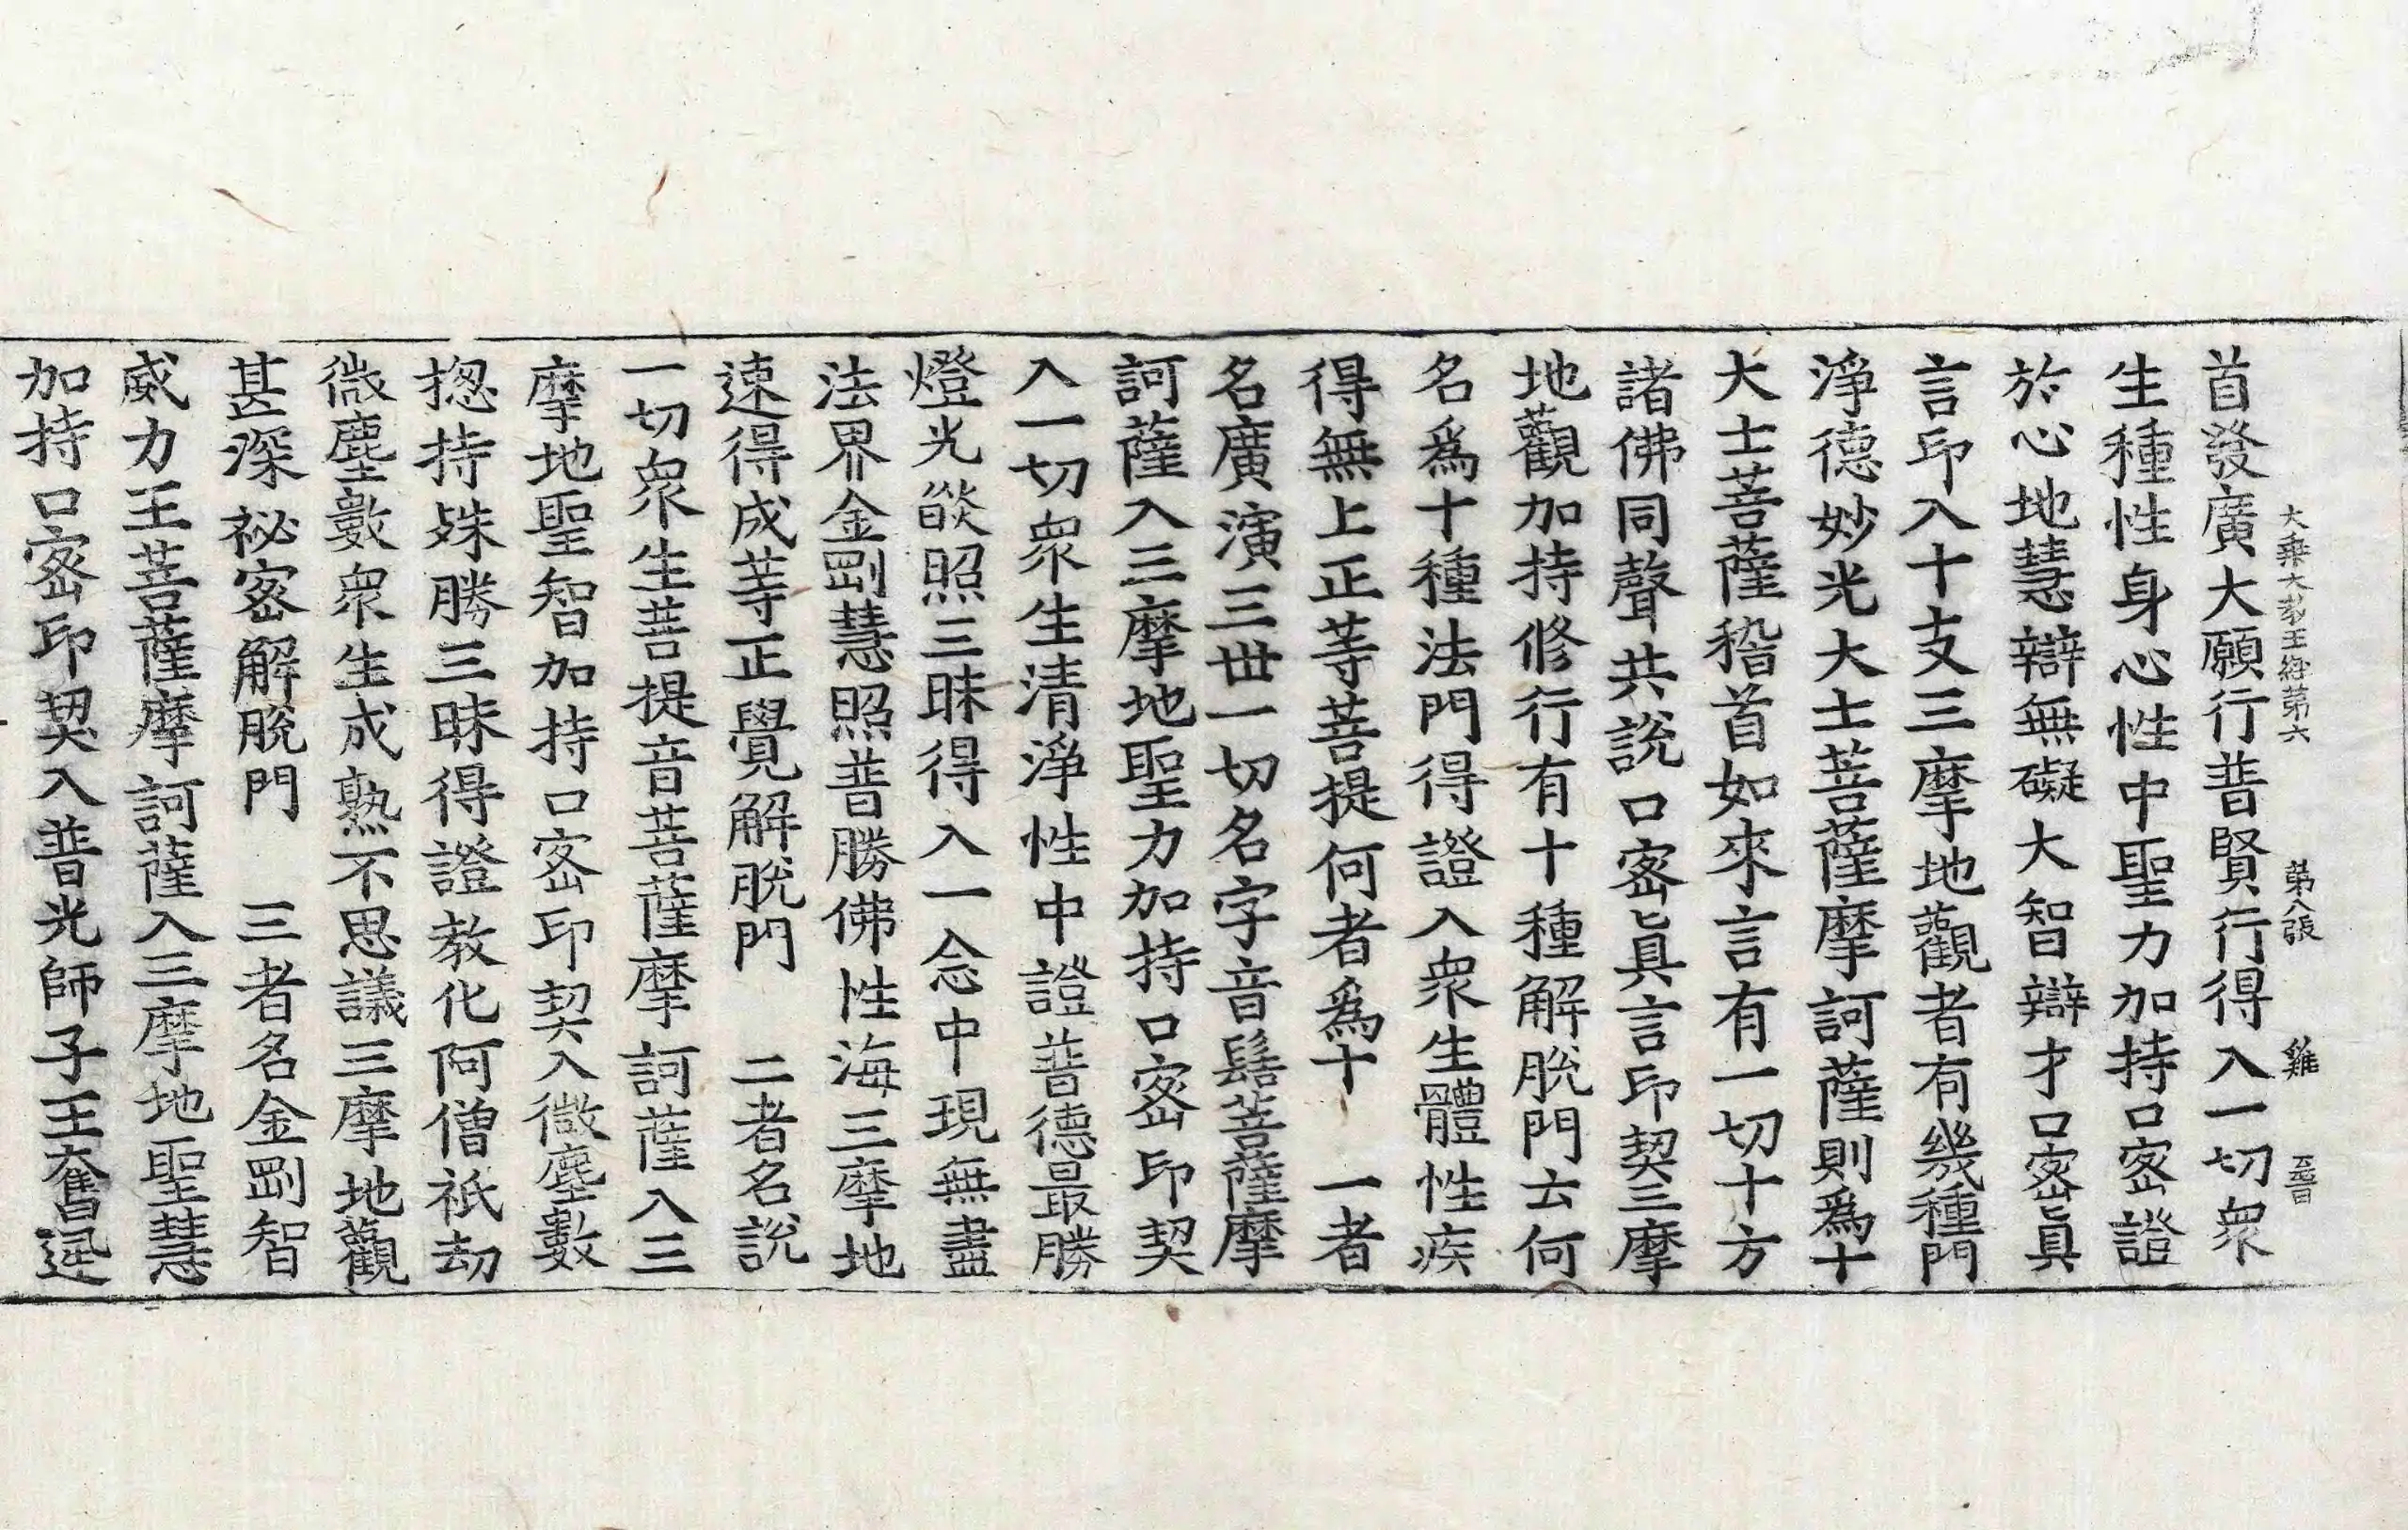 首發廣大願行普賢行得入一切衆
大乘大教王經第六 第八張 雞
生種性身心性中聖力加持口密證
於心地慧辯無礙大智辯才口密眞
言印入十支三摩地觀者有幾種門
淨德妙光大士菩薩摩訶薩則爲十
大士菩薩稽首如來言有一切十方
諸佛同聲共說口密眞言印契三摩
地觀加持修行有十種解脫門云何
名爲十種法門得證入衆生體性疾
得無上正等菩提何者爲十 一者
名廣演三世一切名字音髻菩薩摩
訶薩入三摩地聖力加持口密印契
入一切衆生清淨性中證普德最勝
燈光燄照三昧得入一念中現無盡
法界金剛慧照普勝佛性海三摩地
速得成等正覺解脫門 二者名說
一切衆生菩提音菩薩摩訶薩入三
摩地聖智加持口密印契入微塵數
揔持殊勝三昧得證教化阿僧祇劫
微塵數衆生成熟不思議三摩地觀
甚深祕密解脫門 三者名金剛智
威力王菩薩摩訶薩入三摩地聖慧
加持口密印契入普光師子王奮迅